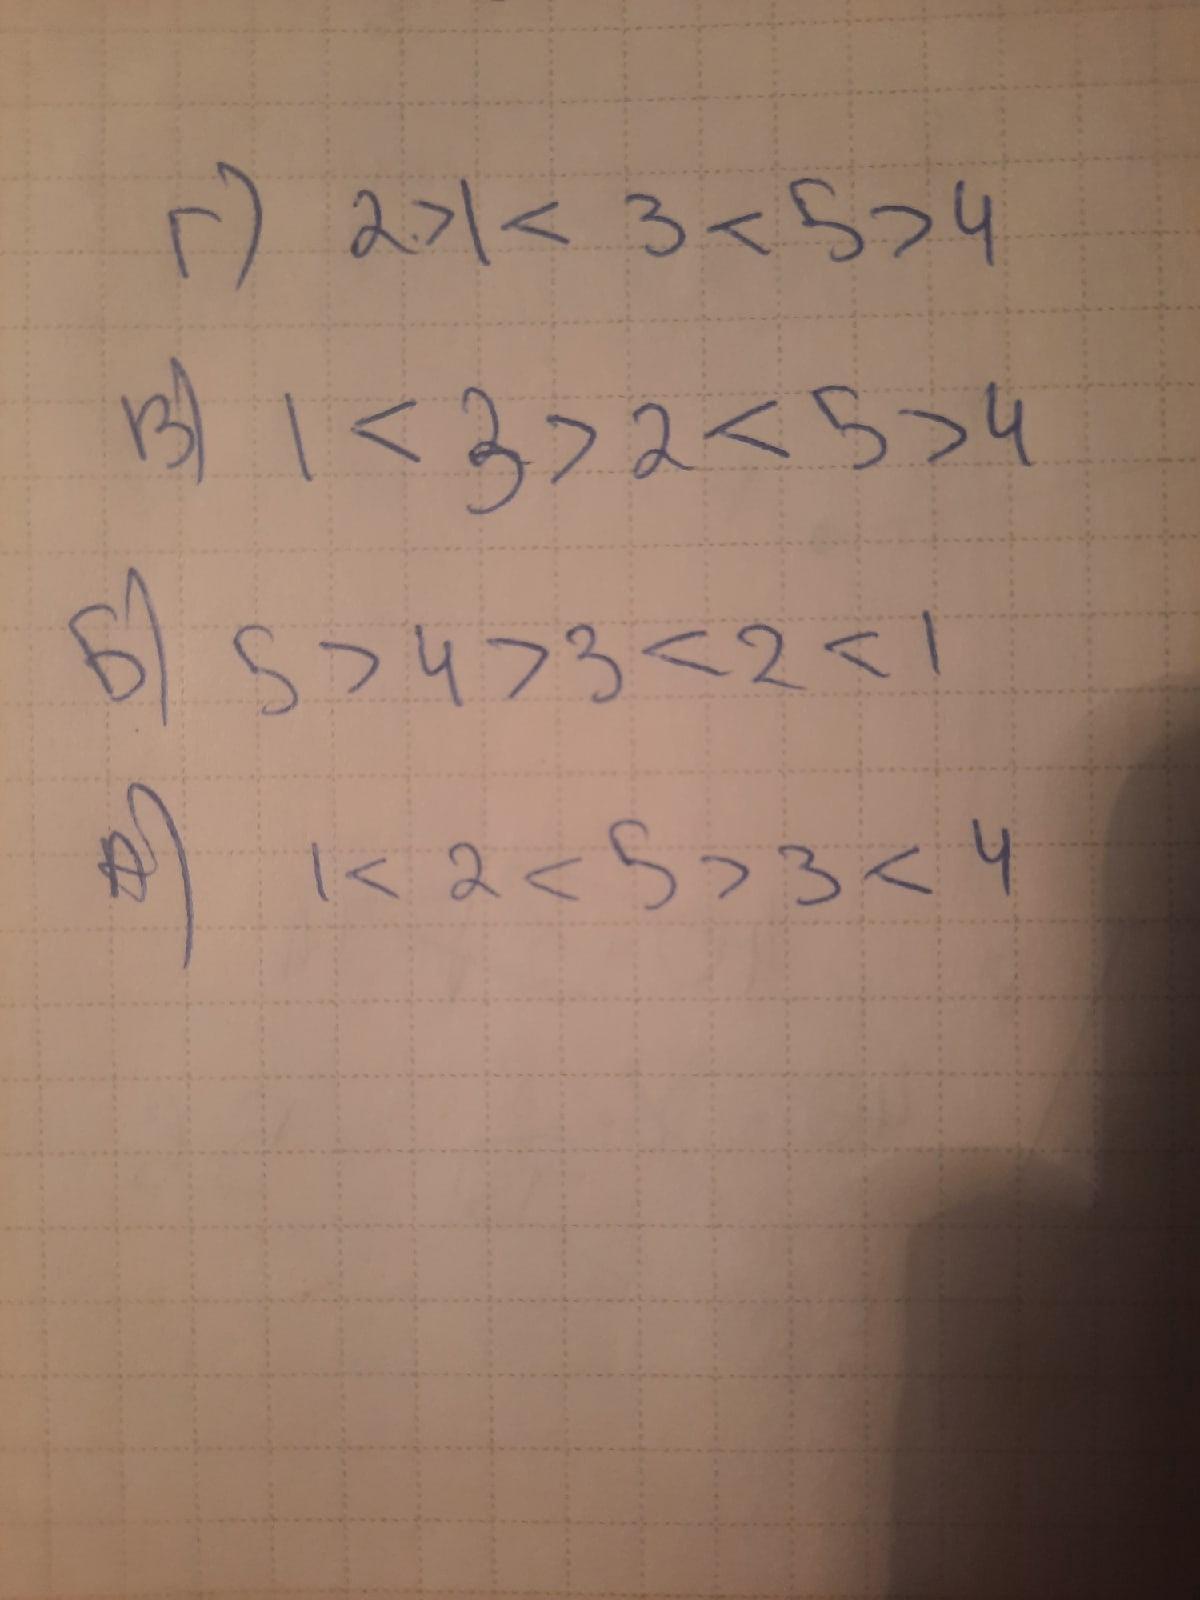 Г) 2>1< 3<5>4
В) 1<3>2<5>4
Б) 5>4>3<2<1
А) 1<2<5>3<4